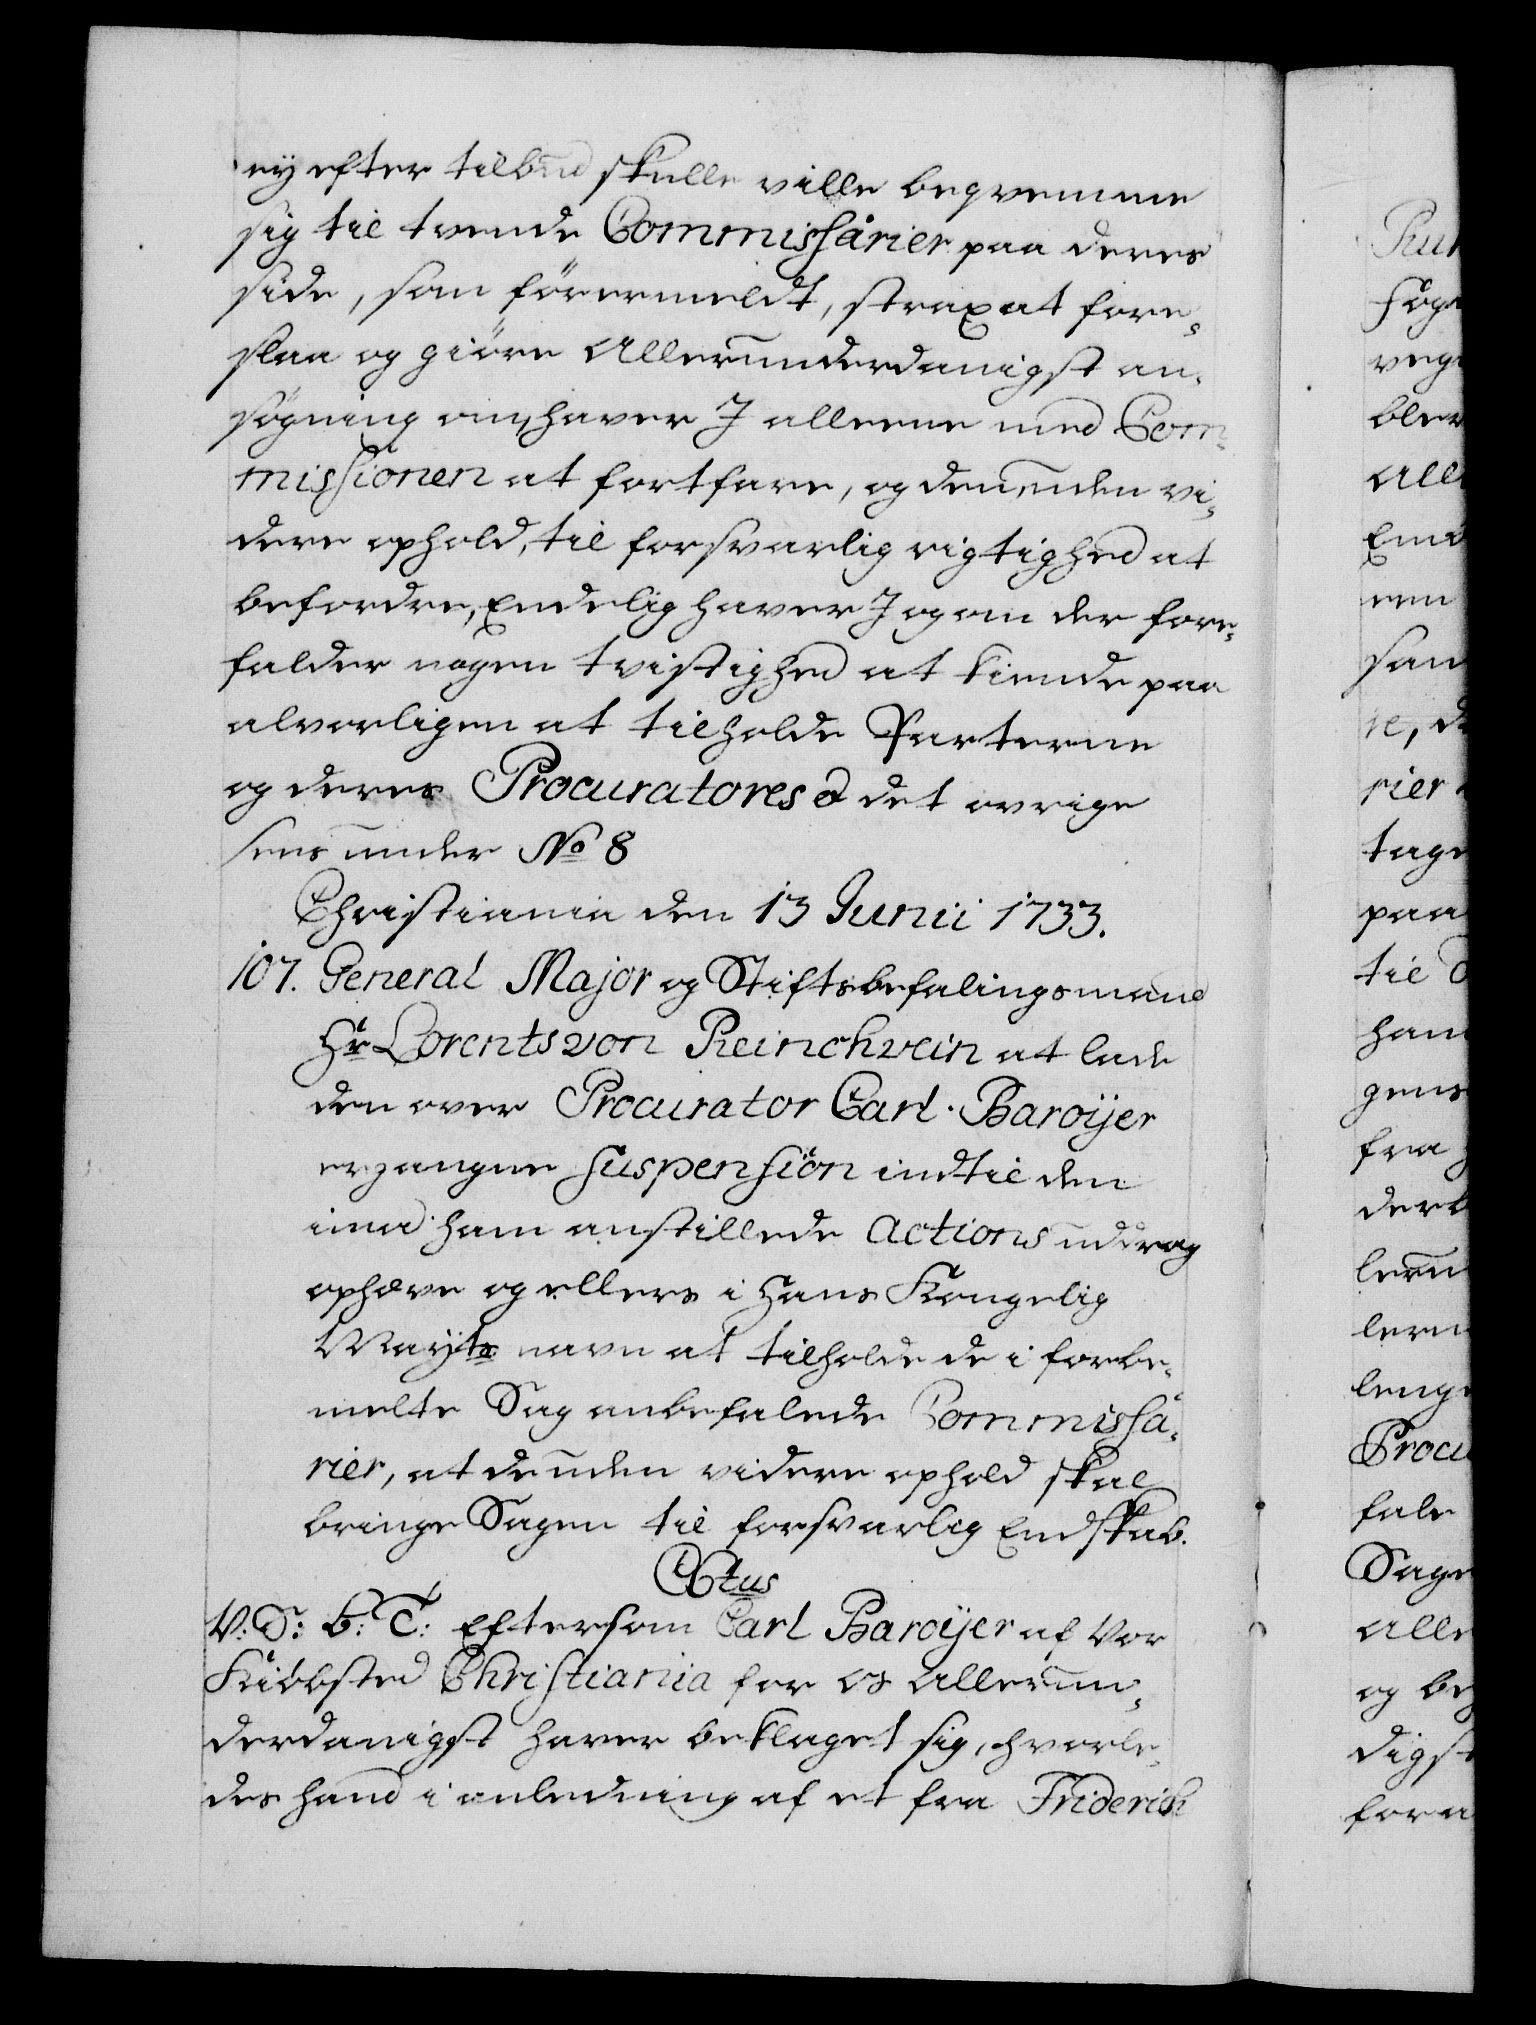 ey efter tilbud skulle ville beqvemme
sig til tvende Commissarier paa deres
side, som förermeldt, strax at fore-
slaa og giöre Allerunderdanigst an-
søgning om, haver I alleene med Com-
missionen at fortfare, og den uden vi-
dere ophold, til forsvarlig rigtighed at
befordre, Endelig haver I og om der fore-
falder nogen tvistighed at kiende paa
alvorligen at tilholde Parterne
og deres Procuratores & det øvrige
sens under No 8
Christiania den 13 Junii 1733.
107. General Major og Stiftsbefalingsmand
Hr Lorents von Reinchvein at lade
den over Procurator Carl Baroÿer
ergangne Suspension indtil den
imod ham anstillede Actions uddrag
ophæve og ellers i Hans Kongelig
Mayts navn at tilholde de i forbe-
melte Sag anbefalede Commissa-
rier, at de uden videre ophold skal
bringe Sagen til forsvarlig Endskab.
V: S: G: T: Eftersom Carl Baroÿer af Vor
Kiöbsted Christiania for os Allerun-
derdanigst haver beklaget sig, hvorle-
des hand i anledning af et fra Friderich